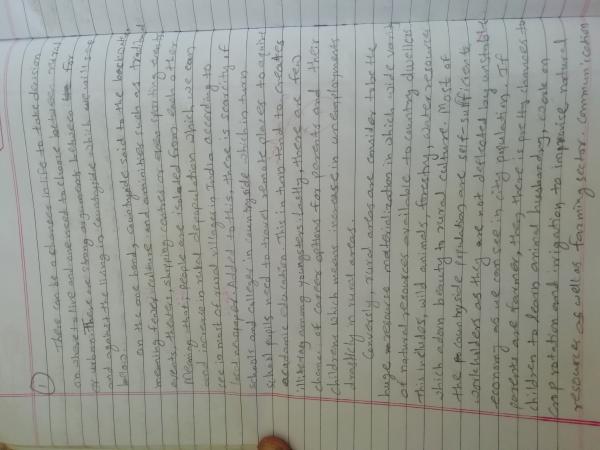 1
There can be a chances in life to take decision
on where to live and one need to choose between rural
or urban. There are strong arguments between for
and against the living in countryside which we will see
below.
On the one hand, countryside said to the backwater
meaning fewer culture and aminities such as tradition
events, theatre, shopping centres or even sporting events
Meaning that, people are isolated from each other
and increase in rural depopulation which we can
see in most of rural villages in India according to
local . Added to this, there is scarcity of
schools and colleges in countryside which in turn
school pupils need to travel remote places to aquire
academic education. This in turn tend to creates
illiteracy among youngsters. lastly, there are few
chances of career options for parents and their
childrens which means increase in unemployments
directly in rural areas.
Conversely, rural areas are consider to be the
huge resource materialization in which wide variety
of natural resources available to country dwellers
this includes, wild animals, forestry, water resources
which adorn beauty to rural culture. Most of
the countryside population are self-sufficients
workholders as they are not deflected by unstable
economy as we can see in city populating. If
parents are farmer, then, there is pretty chances to
children to learn animal husbandry, work on
crop rotation and irrigation to improvise natural
resources as well as farming sector. communication